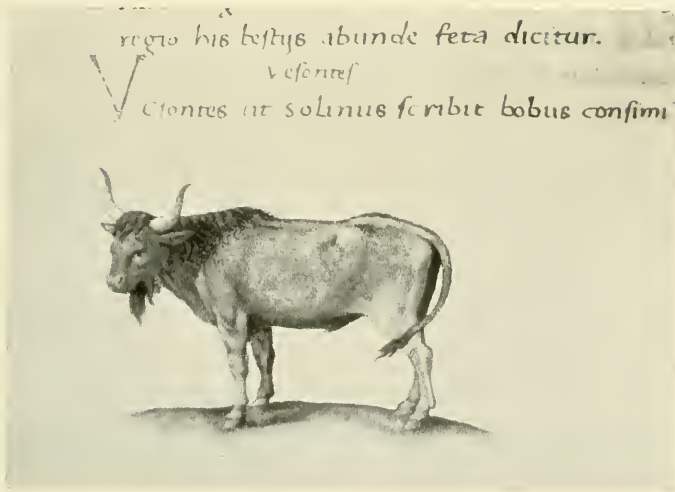 regio his bestijs abunde feta dicitur.
Vesontes
Vesontes ut Solinus scribit bobus consimi